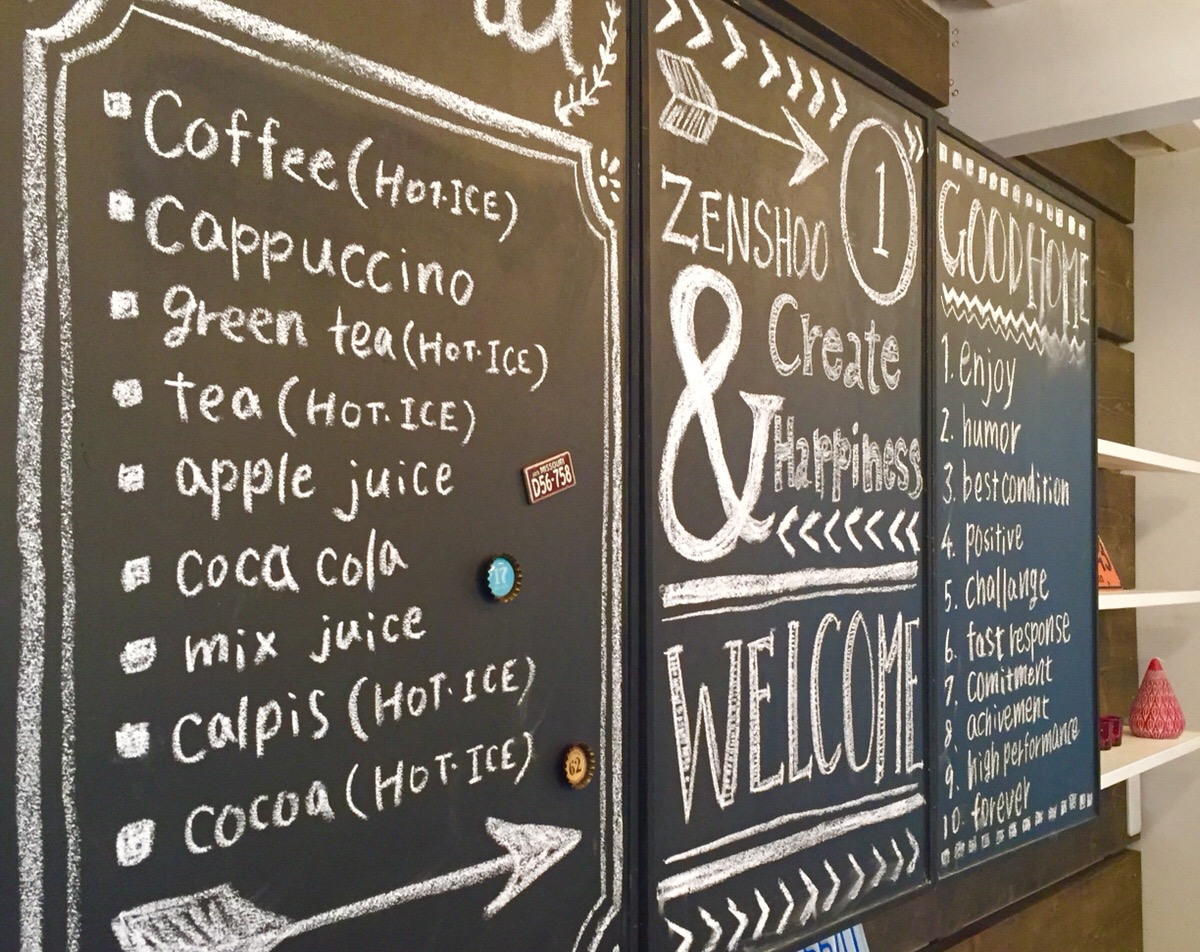 Coffee (HOT.ICE)
Cappuccino
green tea (HOT.ICE)
tea (HOT.ICE)
apple juice
coca cola
mix juice
calpis (HOT.ICE)
cocoa (HOT.ICE)
MISSOURI
D56-758
17
62
1
ZENSHOO
& Create
Happiness
WELCOME
GOOD HOME
1. enjoy
2. humor
3. best condition
4. positive
5. challange
6. fast response
7. comitment
8. achivement
9. high performance
10. forever